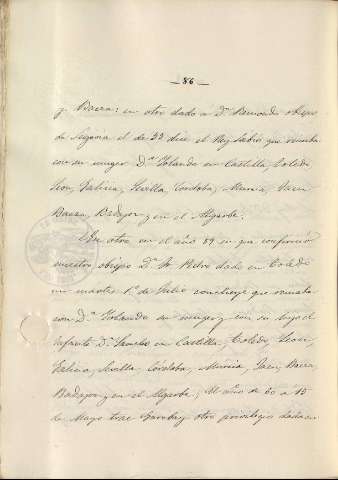 —86—
y Baeza: en otro dado a Dn. Raimundo obispo
de Segovia el de 22 dice el Rey Sabio que reinaba
con su muger Dª Yolanda en Castilla, Toledo
Leon, Galicia, Sevilla, Cordoba, Murcia, Jaen
Baeza, Badajoz y en el Algarbe.
En otro en el año 59 en que confirmó
nuestro obispo Dn. Pedro dado en Toledo
martes 1º de Julio concluye que reinaba
con Dª Yolanda su muger y con su hijo el
Infante Dn. Sancho en Castilla, Toledo, Leon,
Galicia, Sevilla, Córdoba, Murcia, Jaen, Baeza,
Badajoz y en el Algarbe. El año de 60 a 15
de Mayo trae otro privilegio dado en